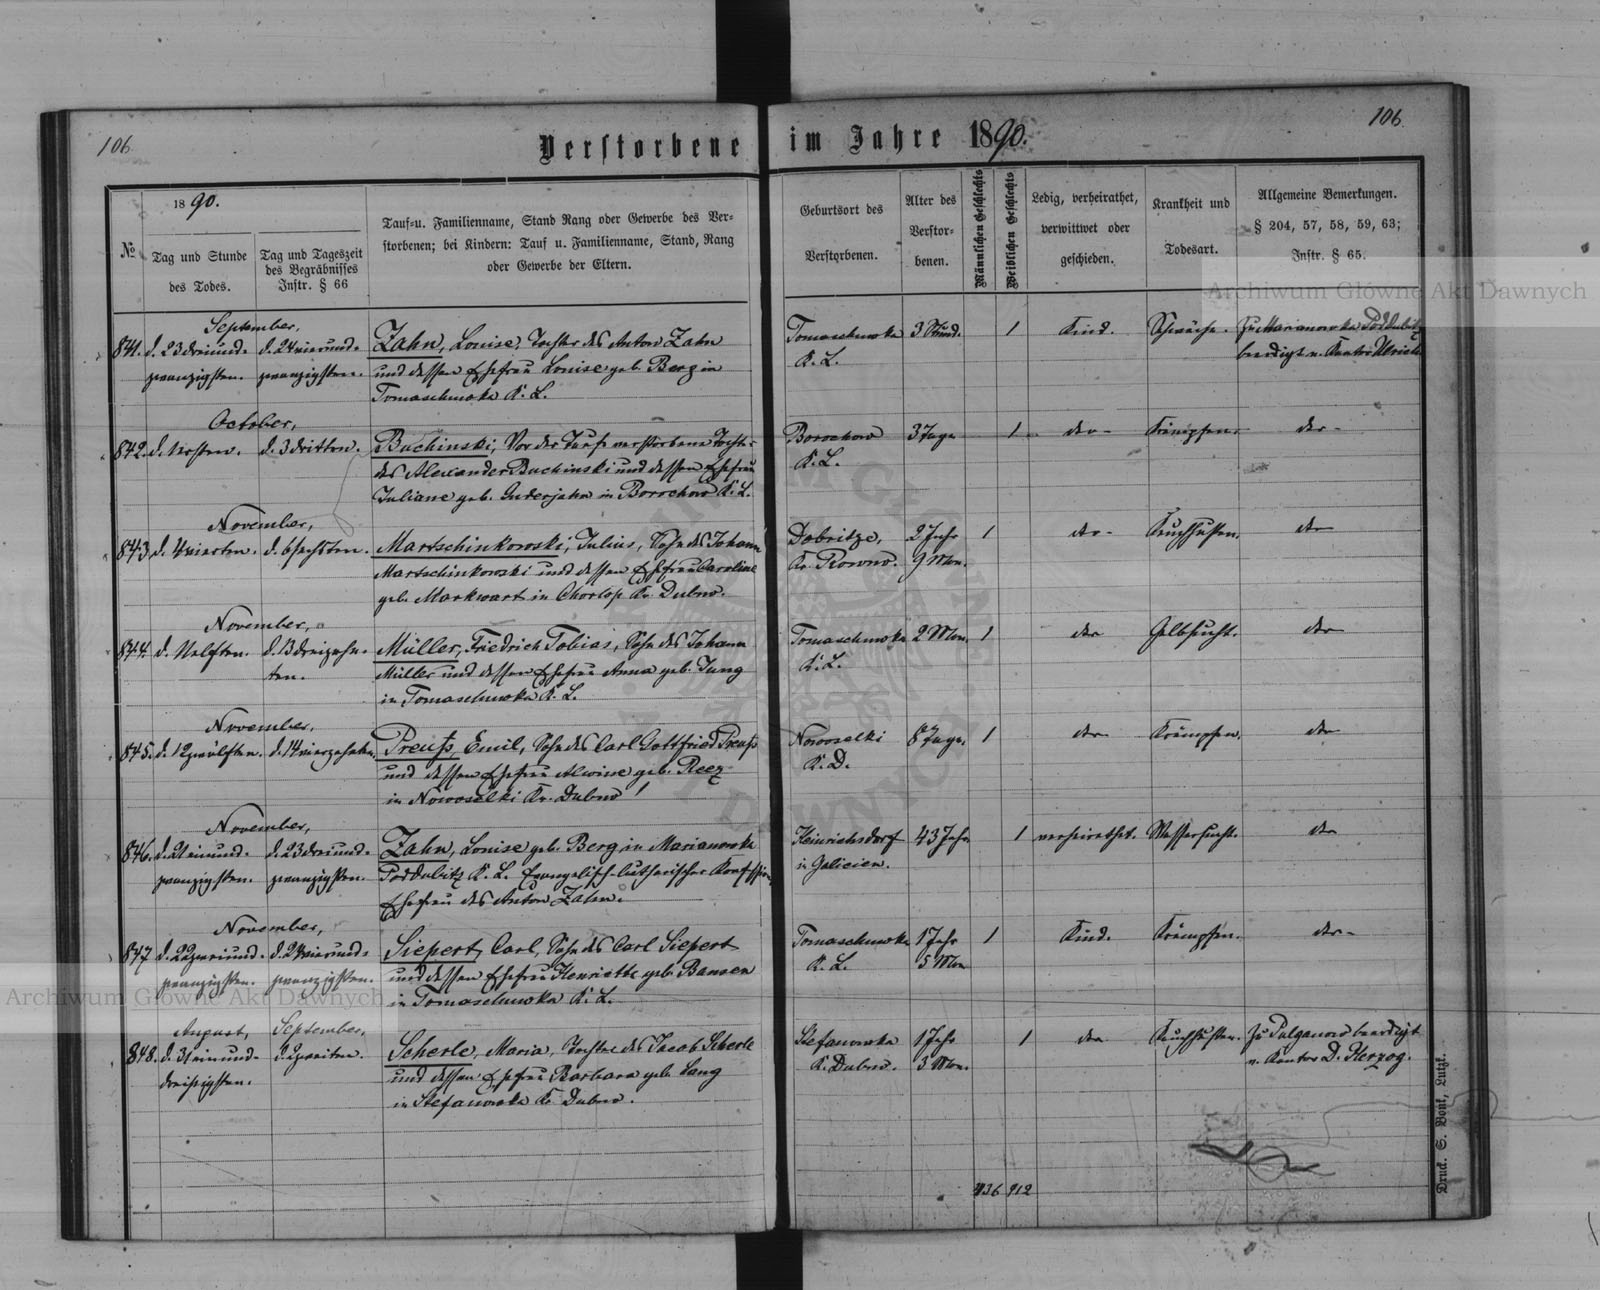 106
106
Verstorbene im Jahre 1890.
1890.
№
Tag und Stunde
des Todes.
Tag und Tageszeit
des Begräbnisses
Instr. § 66
Tauf=u. Familienname, Stand Rang oder Gewerbe des Ver=
storbenen; bei Kindern: Tauf u. Familienname, Stand, Rang
oder Gewerbe der Eltern.
Geburtsort des
Verstorbenen.
Alter des
Verstor=
benen.
Männlichen Geschlechts
Weiblichen Geschlechts
Ledig, verheirathet,
verwittwet oder
geschieden.
Krankheit und
Todesart.
Allgemeine Bemerkungen.
§ 204, 57, 58, 59, 63;
Instr. § 65.
September,
841. d. 23 dreiund- d. 24 vierund- Zahn, Louise, Tochter des Anton Zahn Tomaschewka 3 Stund. 1 Kind. Schwäche. Zu Marianowka Poddubitz
zwanzigsten. zwanzigsten. und dessen Ehefrau Louise geb. Berg in K. L. beerdigt v. Kantor Ulrich
Tomaschewka K. L.
October,
842. d. 1 ersten. d. 3 dritten. Buchinski, Vor der Taufe verstorbene Tochter Borochow 3 Tage 1 do- Krämpfen. do-
des Alexander Buchinski und dessen Ehefrau K. L.
Juliane geb. Inderjahn in Borochow K. L.
November,
843 d. 4 vierten. d. 6 sechsten. Martschinkowski, Julius, Sohn des Johann Dobritze, 2 Jahr 1 do- Keuchhusten. do
Martschinkowski und dessen Ehefrau Caroline Kr. Rowno. 9 Mon.
geb. Markwart in Chorlop Kr. Dubno.
November,
844. d. 11 elften. d. 13 dreizehn- Müller, Friedrich Tobias, Sohn des Johann Tomaschewka 2 Mon. 1 do Gelbsucht. do
ten. Müller und dessen Ehefrau Anna geb. Jung K. L.
in Tomaschewka K. L.
November,
845. d. 12 zwölften. d. 14 vierzehnten. Preuß, Emil, Sohn des Carl Gottfried Preuß Nowoselki 8 Tage, 1 do Krämpfen. do
und dessen Ehefrau Alwine geb. Reez K. D.
in Nowoselki Kr. Dubno
November,
846. d. 21 einund- d. 23 dreiund- Zahn, Louise geb. Berg in Marianowka Heinrichsdorf 43 Jahr 1 verheirathet. Wassersucht. do
zwanzigsten. zwanzigsten. Poddubitz K. L. Evangelisch-lutherischer Konfession, in Galicien.
Ehefrau des Anton Zahn.
November,
847 d. 22 zweiund- d. 24 vierund- Siepert, Carl, Sohn des Carl Siepert Tomaschewka 1 Jahr 1 Kind. Krämpfen. do-
zwanzigsten. zwanzigsten. und dessen Ehefrau Henriette geb. Bansen K. L. 5 Mon
in Tomaschewka K. L.
August, September,
848. d. 31 einund- d. 2 zweiten. Scherle, Maria, Tochter des Jacob Scherle Stefanowka 1 Jahr 1 do Keuchhusten. Zu Pulganow beerdigt
dreißigsten. und dessen Ehefrau Barbara geb. Lang K. Dubno. 3 Mon. v. Kantor D. Herzog.
in Stefanowka K. Dubno.
436 412
Druck. S. Bonk, Lutzk.
Archiwum Główne Akt Dawnych
Archiwum Główne Akt Dawnych